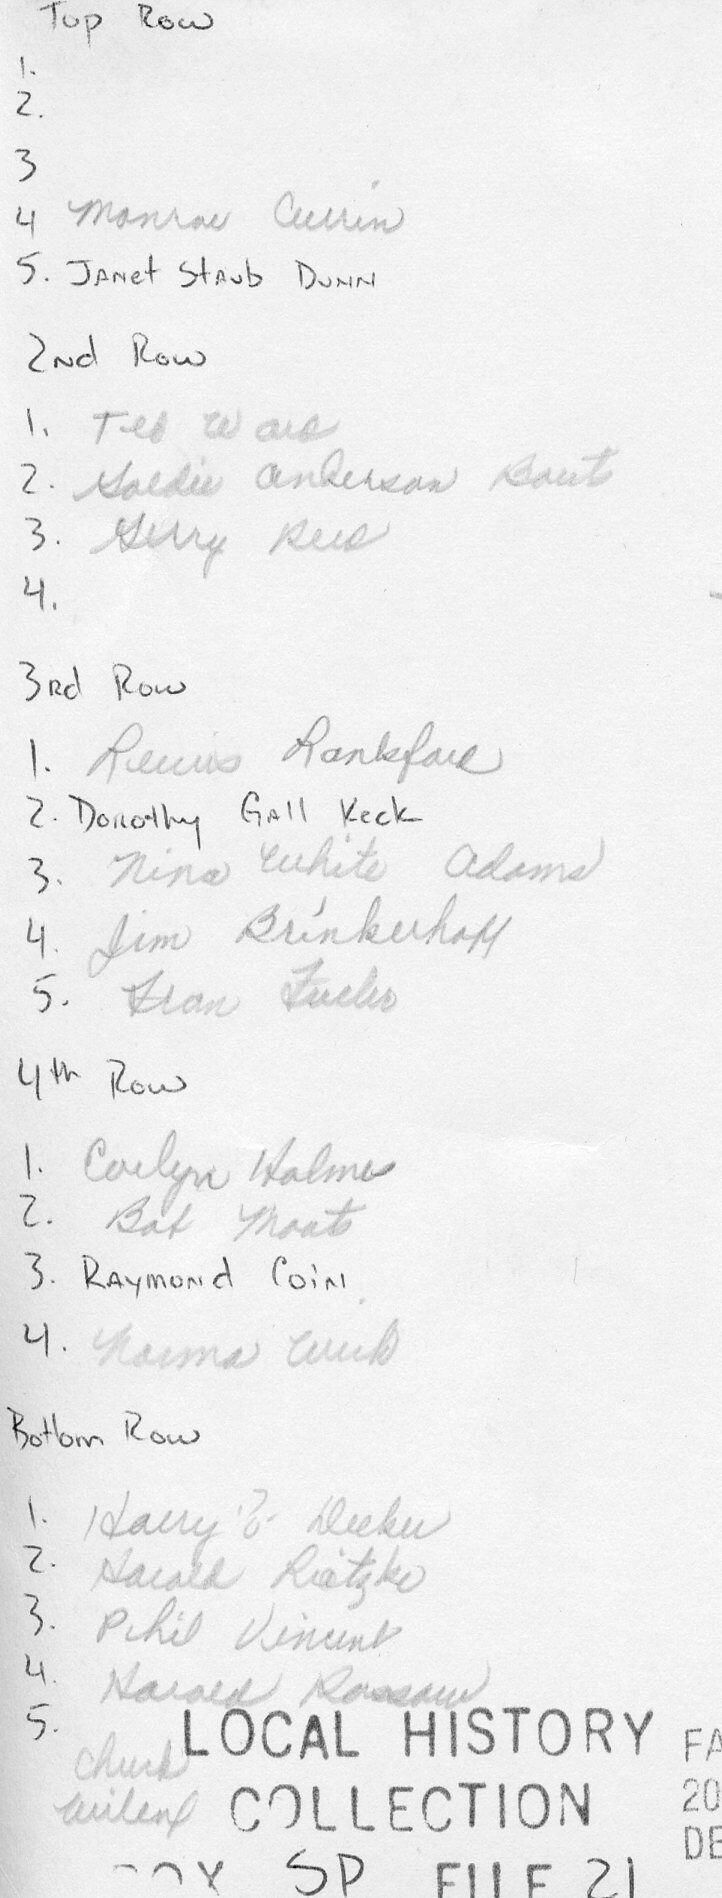 Top Row
1.
2.
3
4 Monroe Currin
5. Janet Staub Dunn
2nd Row
1. Ted Ward
2. Goldie Anderson
3. Gerry Reed
4.
3rd Row
1. Rankford
2. Dorothy Gall Keck
3. Nina White Adams
4. Jim Brinkerhoff
5. Fran
4th Row
1. Evelyn Holmes
2. Bob Moats
3. Raymond Coin
4. Norma
Bottom Row
1. Harry ? Decker
2. Harold Rietzke
3. Phil Vincent
4. Harold Rossow
5.
Chuck
LOCAL HISTORY
COLLECTION
SP FILE 21
FA
20
DE